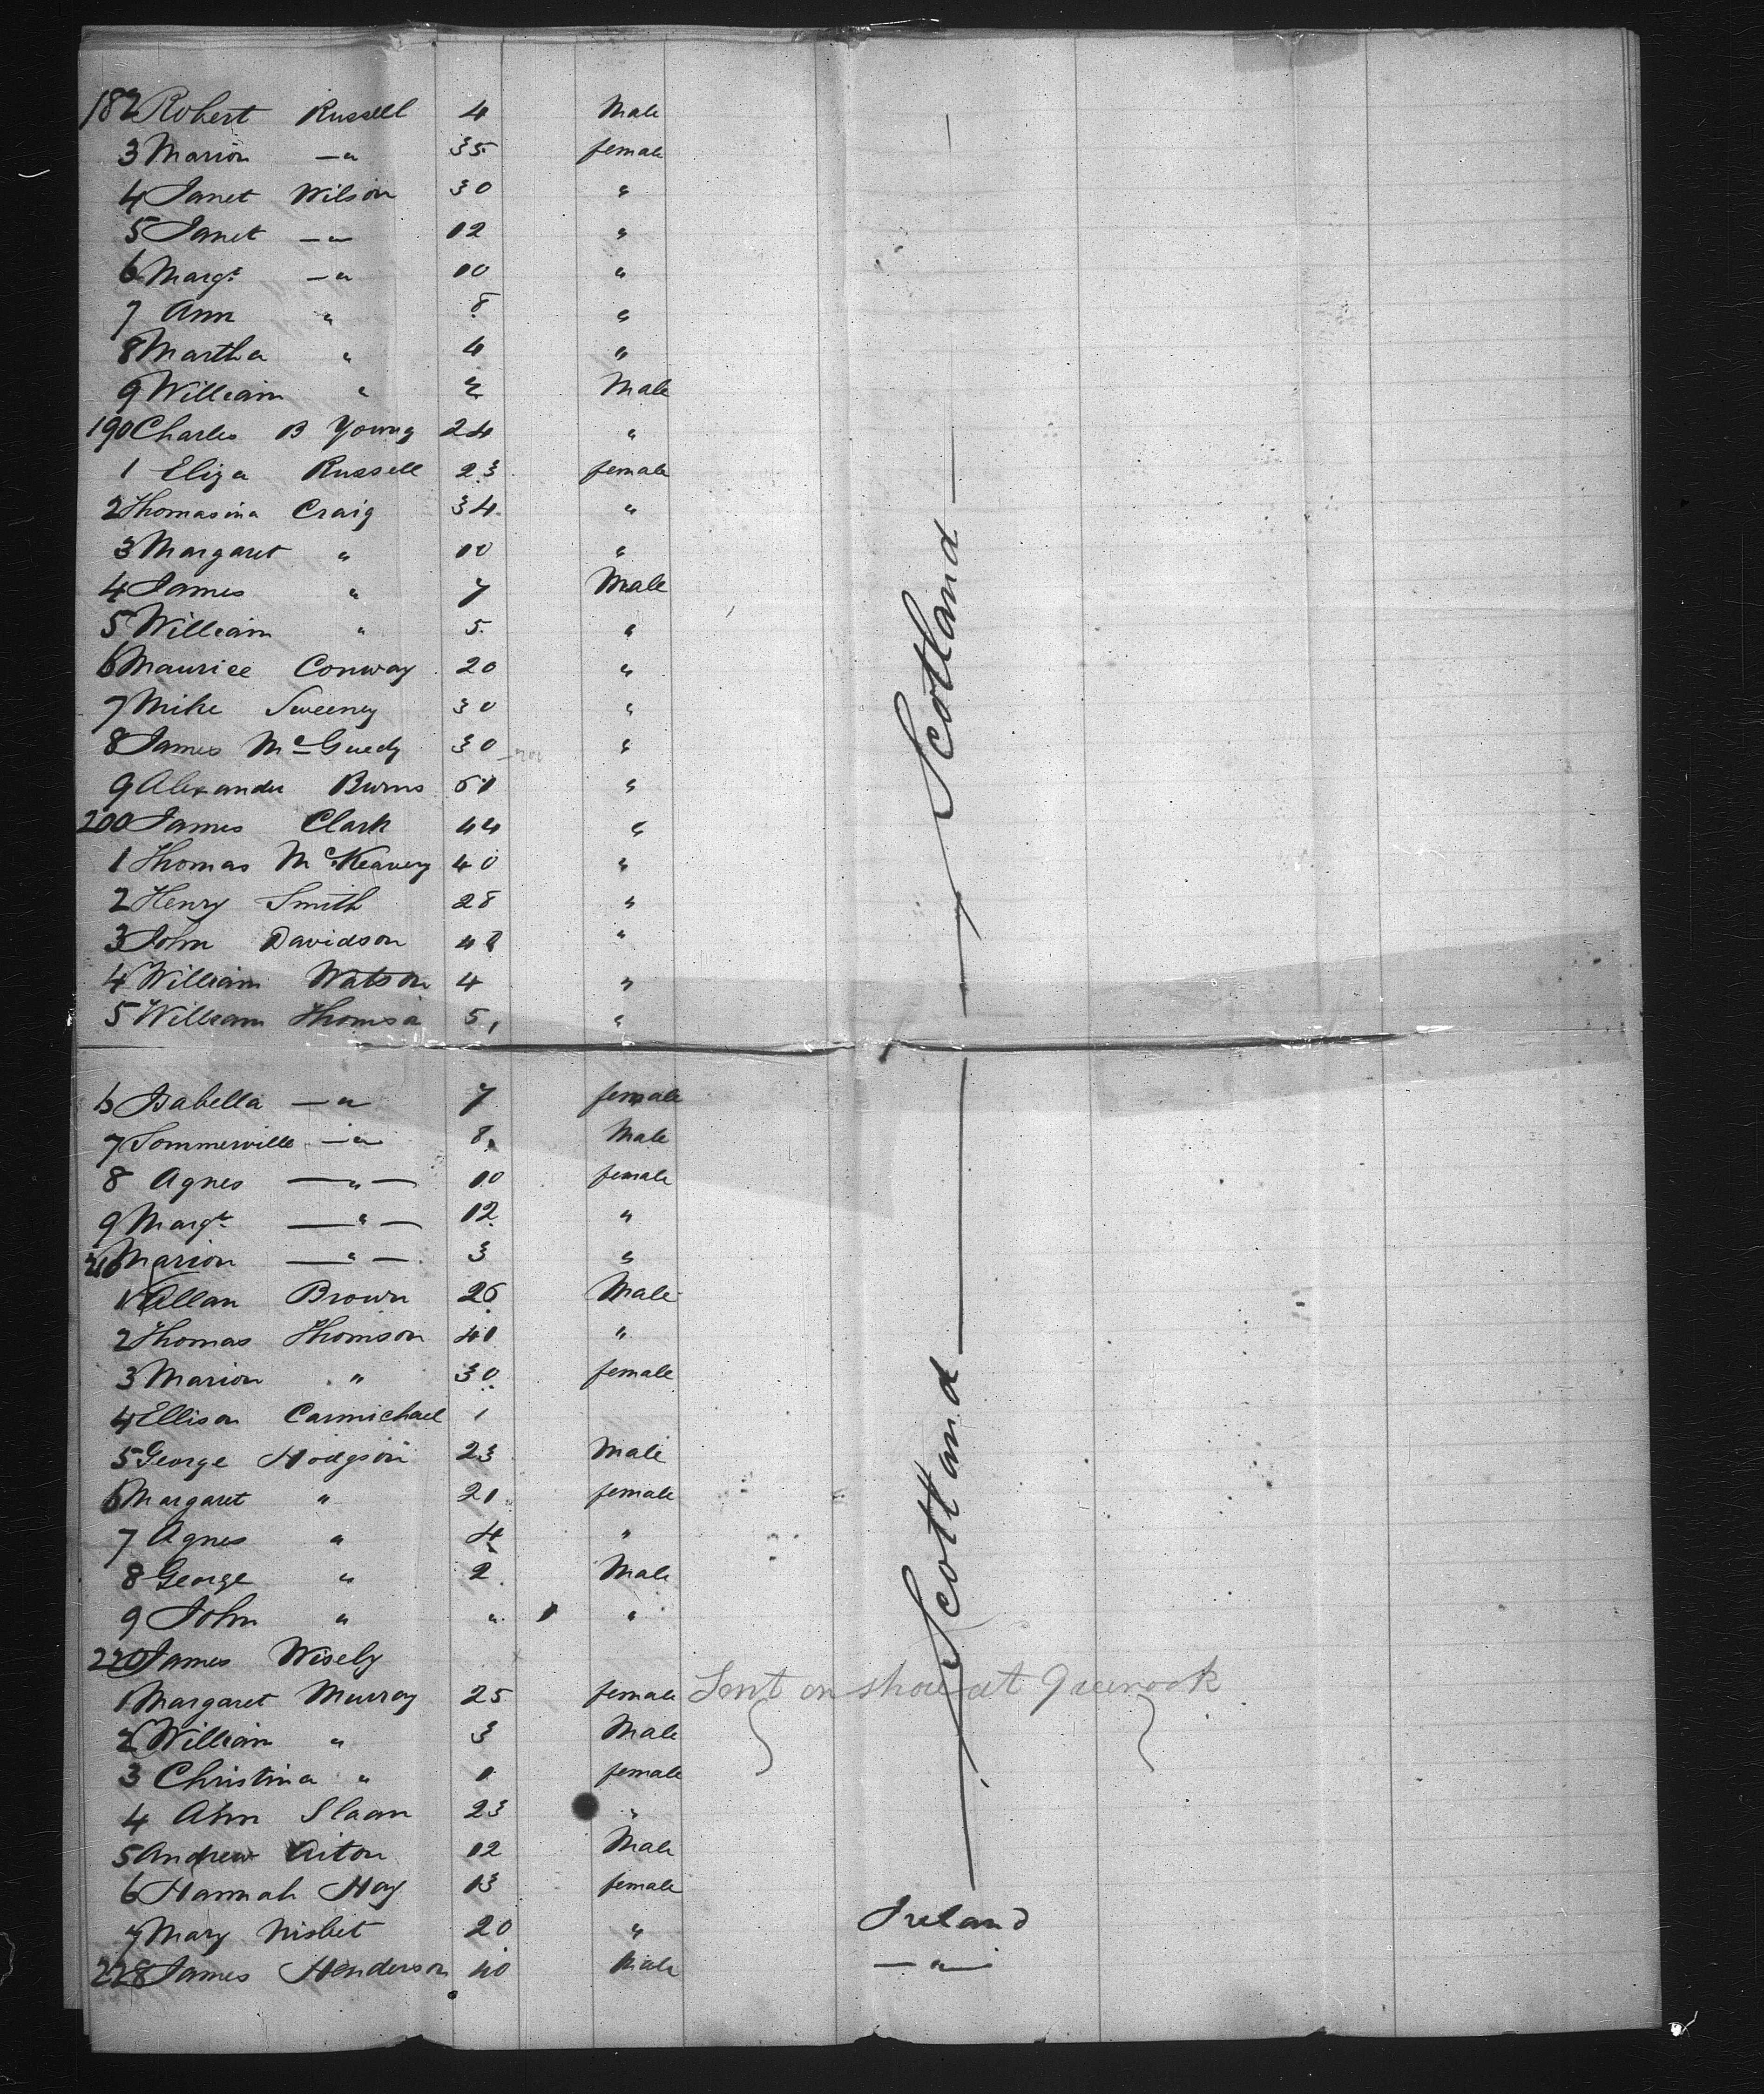 182 Robert Russell 4 Male
3 Marion —" 35 female
4 Janet Wilson 30 "
5 Janet —" 12 "
6 Margt —" 10 "
7 Ann " 8 "
8 Martha " 4 "
9 William " 2 Male
190 Charles B Young 24 "
1 Eliza Russell 23 female
2 Thomasina Craig 34 "
3 Margaret " 10 "
4 James " 7 Male
5 William " 5 "
6 Maurice Conway 20 "
7 Mike Sweeney 30 "
8 James 30 "
9 Alexander Burns 61 "
200 James Clark 44 "
1 Thomas McKeavery 40 "
2 Henry Smith 28 "
3 John Davidson 48 "
4 William Watson 4 "
5 William Thomson 5 "
— Scotland —
6 Isabella —" 7 female
7 Sommerville —" 8 Male
8 Agnes —"— 10 female
9 Margt —"— 12 "
210 Marion —"— 3 "
1 Allan Brown 26 Male
2 Thomas Thomson 41 "
3 Marion " 30 female
4 Ellison Carmichael 1
5 George Hodgson 23 Male
6 Margaret " 21 female
7 Agnes " 4 "
8 George " 2 Male
9 John " " 1 "
— Scotland —
220 James Wisely
1 Margaret Murray 25 female Sent on shore at Greenock
2 William " 3 Male
3 Christina " 1 female
4 Ann Slaan 23 "
5 Andrew Aiton 12 Male
6 Hannah Hay 13 female
7 Mary Nisbet 20 " Ireland
228 James Henderson 40 Male —"—